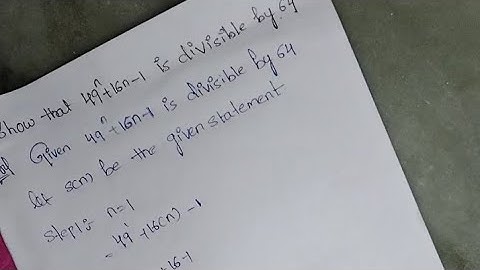 Show that 49ⁿ+16n-1 is divisible by 64
Sol Given 49ⁿ+16n-1 is divisible by 64
let s(n) be the given statement
Step1:- n=1
= 49¹ + 16(n) - 1
+16-1